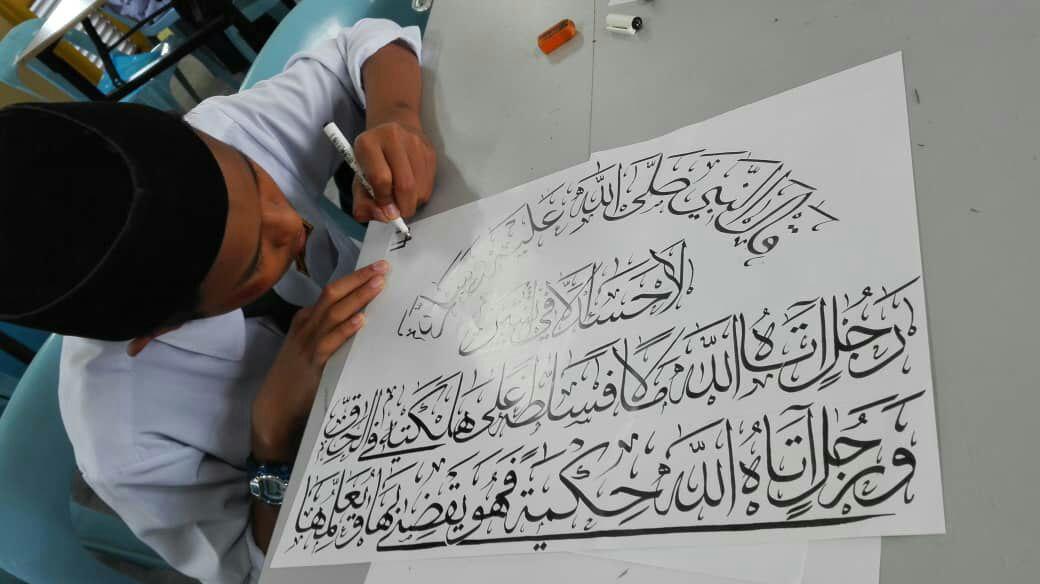 قال النبي صلى الله عليه وسلم
لا حسد إلا في اثنتين
رجل آتاه الله مالا فسلطه على هلكته في الحق
ورجل آتاه الله حكمة فهو يقضي بها ويعلمها